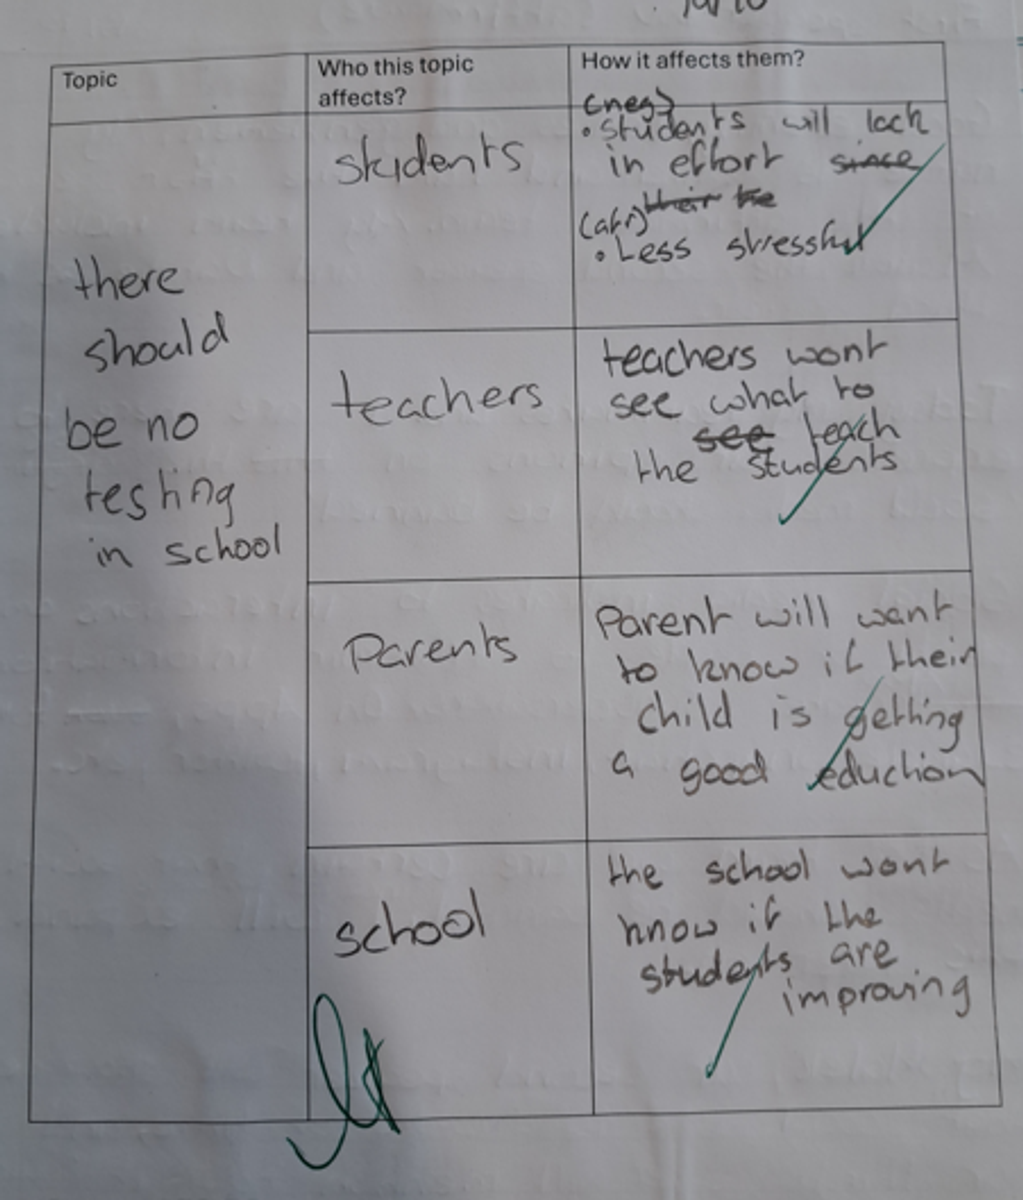 Topic
Who this topic
affects?
How it affects them?
there
should
be no
testing
in school
students
(neg)
•students will lack
in effort since
their the
(afr)
•Less stressful
teachers
teachers wont
see what to
see teach
the students
Parents
Parent will want
to know if their
child is getting
a good eduction
school
the school wont
know if the
students are
improving